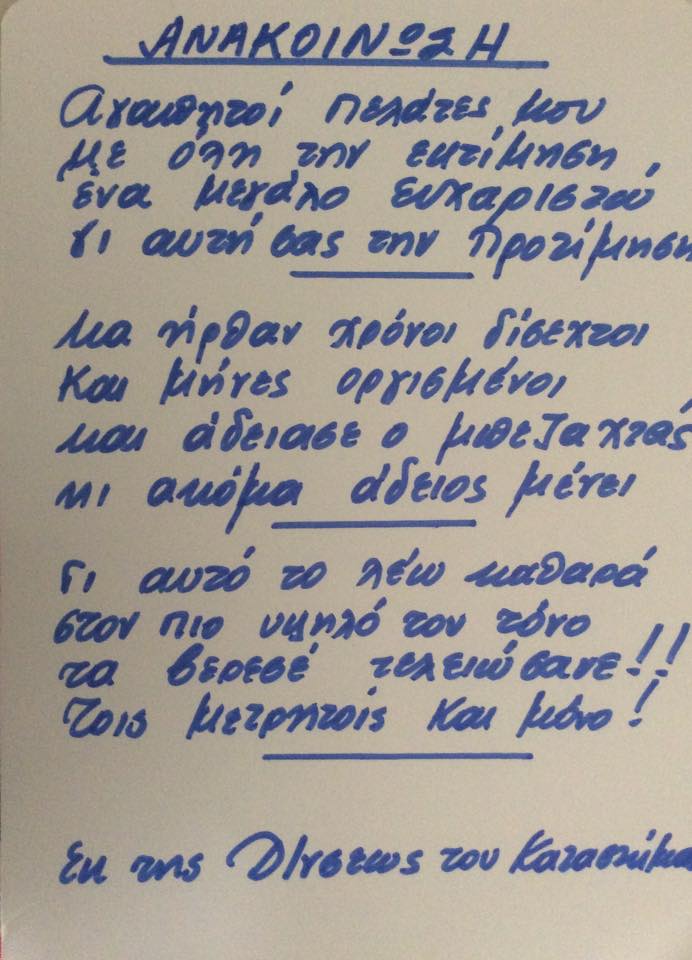 ΑΝΑΚΟΙΝΩΣΗ
Αγαπητοί πελάτες μου
με όλη την εκτίμηση,
ένα μεγάλο ευχαριστώ
γι αυτή σας την προτίμηση
μα ήρθαν χρόνοι δίσεχτοι
και μήνες οργισμένοι
και άδειασε ο μπεζαχτάς
κι ακόμα άδειος μένει
Γι αυτό το λέω καθαρά
στον πιο υψηλό τον τόνο
τα βερεσέ τελειώσανε!!
Τοις μετρητοίς και μόνο!
Εκ της Δ/νσεως του Καταστήμα